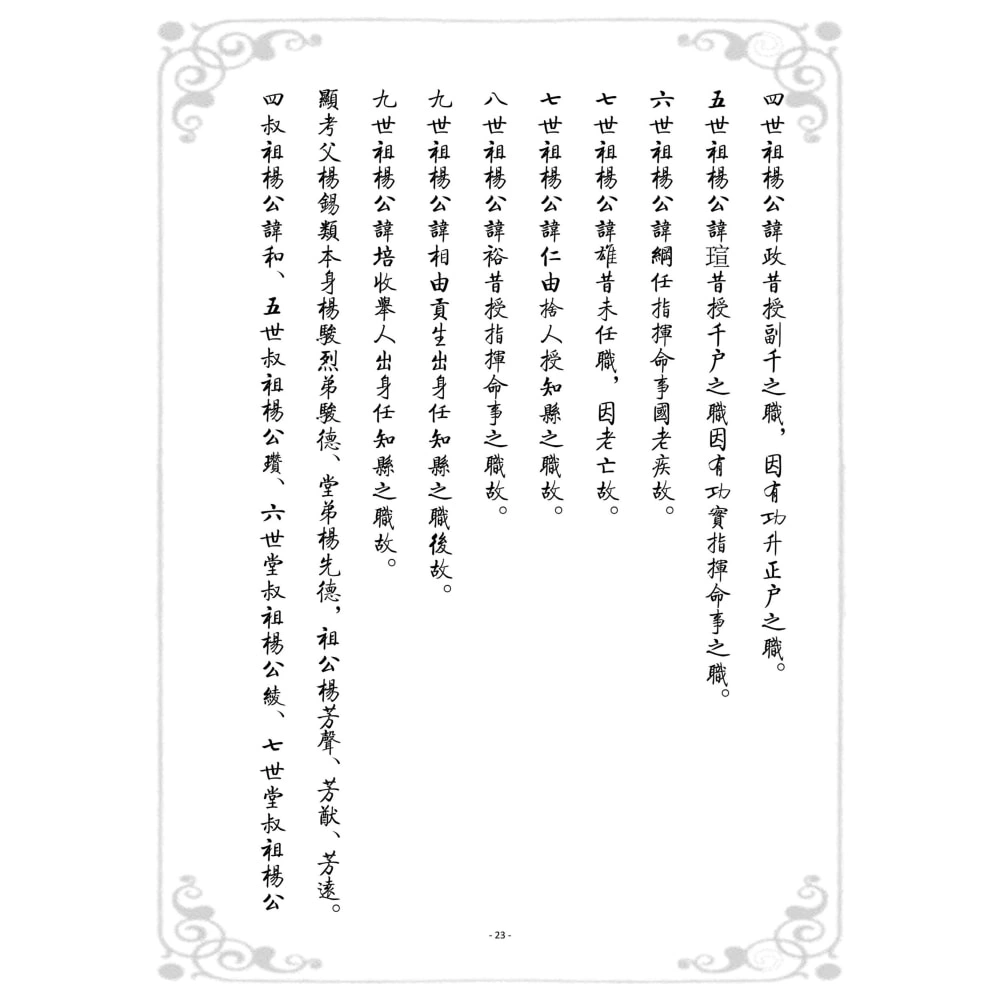 四世祖楊公諱政昔授副千之職，因有功升正户之職。
五世祖楊公諱瑄昔授千户之職因有功實指揮命事之職。
六世祖楊公諱綱任指揮命事國老疾故。
七世祖楊公諱雄昔未任職，因老亡故。
七世祖楊公諱仁由捨人授知縣之職故。
八世祖楊公諱裕昔授指揮命事之職故。
九世祖楊公諱相由貢生出身任知縣之職後故。
九世祖楊公諱培收舉人出身任知縣之職故。
顯考父楊錫類本身楊駿烈弟駿德、堂弟楊先德，祖公楊芳聲、芳猷、芳遠。
四叔祖楊公諱和、五世叔祖楊公瓚、六世堂叔祖楊公綾、七世堂叔祖楊公
- 23 -